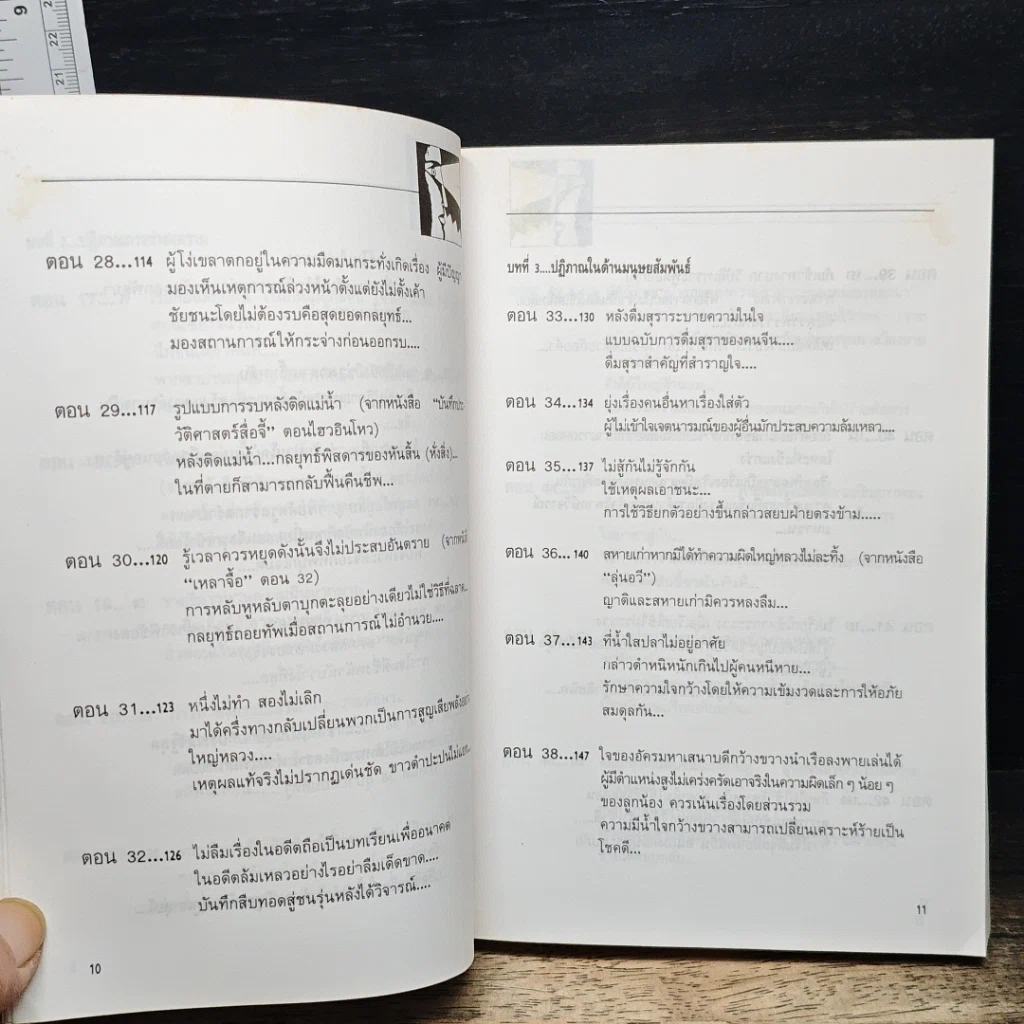 9
22
21
ตอน 28...114 ผู้โง่เขลาตกอยู่ในความมืดมนกระทั่งเกิดเรื่อง ผู้มีปัญญา
มองเห็นเหตุการณ์ล่วงหน้าตั้งแต่ยังไม่ตั้งเค้า
ชัยชนะโดยไม่ต้องรบคือสุดยอดกลยุทธ์...
มองสถานการณ์ให้กระจ่างก่อนออกรบ....
ตอน 29...117 รูปแบบการรบหลังติดแม่น้ำ (จากหนังสือ "บันทึกประ
วัติศาสตร์สื่อจี้" ตอนไฮวอินโหว)
หลังติดแม่น้ำ...กลยุทธ์พิสดารของหันสิ้น (หั่งสิ่ง)...
ในที่ตายก็สามารถกลับฟื้นคืนชีพ...
ตอน 30...120 รู้เวลาควรหยุดดังนั้นจึงไม่ประสบอันตราย (จากหนังสือ
"เหลาจื้อ" ตอน 32)
การหลับหูหลับตาบุกตะลุยอย่างเดียวไม่ใช่วิธีที่ฉลาด...
กลยุทธ์ถอยทัพเมื่อสถานการณ์ไม่อำนวย....
ตอน 31...123 หนึ่งไม่ทำ สองไม่เลิก
มาได้ครึ่งทางกลับเปลี่ยนพวกเป็นการสูญเสียพลังอย่าง
ใหญ่หลวง....
เหตุผลแท้จริงไม่ปรากฏเด่นชัด ขาวดำปะปนไม่แยก...
ตอน 32...126 ไม่ลืมเรื่องในอดีตถือเป็นบทเรียนเพื่ออนาคต
ในอดีตล้มเหลวอย่างไรอย่าลืมเด็ดขาด....
บันทึกสืบทอดสู่ชนรุ่นหลังได้วิจารณ์....
10
บทที่ 3....ปฏิภาณในด้านมนุษยสัมพันธ์
ตอน 33...130 หลังดื่มสุราระบายความในใจ
แบบฉบับการดื่มสุราของคนจีน....
ดื่มสุราสำคัญที่สำราญใจ....
ตอน 34...134 ยุ่งเรื่องคนอื่นหาเรื่องใส่ตัว
ผู้ไม่เข้าใจเจตนารมณ์ของผู้อื่นมักประสบความล้มเหลว....
ตอน 35...137 ไม่สู้กันไม่รู้จักกัน
ใช้เหตุผลเอาชนะ...
การใช้วิธียกตัวอย่างขึ้นกล่าวสยบฝ่ายตรงข้าม.....
ตอน 36...140 สหายเก่าหากมิได้ทำความผิดใหญ่หลวงไม่ละทิ้ง (จากหนังสือ
"ลุ่นอวี")
ญาติและสหายเก่ามิควรหลงลืม...
ตอน 37...143 ที่น้ำใสปลาไม่อยู่อาศัย
กล่าวตำหนิหนักเกินไปผู้คนหนีหาย...
รักษาความใจกว้างโดยให้ความเข้มงวดและการให้อภัย
สมดุลกัน...
ตอน 38...147 ใจของอัครมหาเสนาบดีกว้างขวางนำเรือลงพายเล่นได้
ผู้มีตำแหน่งสูงไม่เคร่งครัดเอาจริงในความผิดเล็ก ๆ น้อย ๆ
ของลูกน้อง ควรเน้นเรื่องโดยส่วนรวม
ความมีน้ำใจกว้างขวางสามารถเปลี่ยนเคราะห์ร้ายเป็น
โชคดี...
11